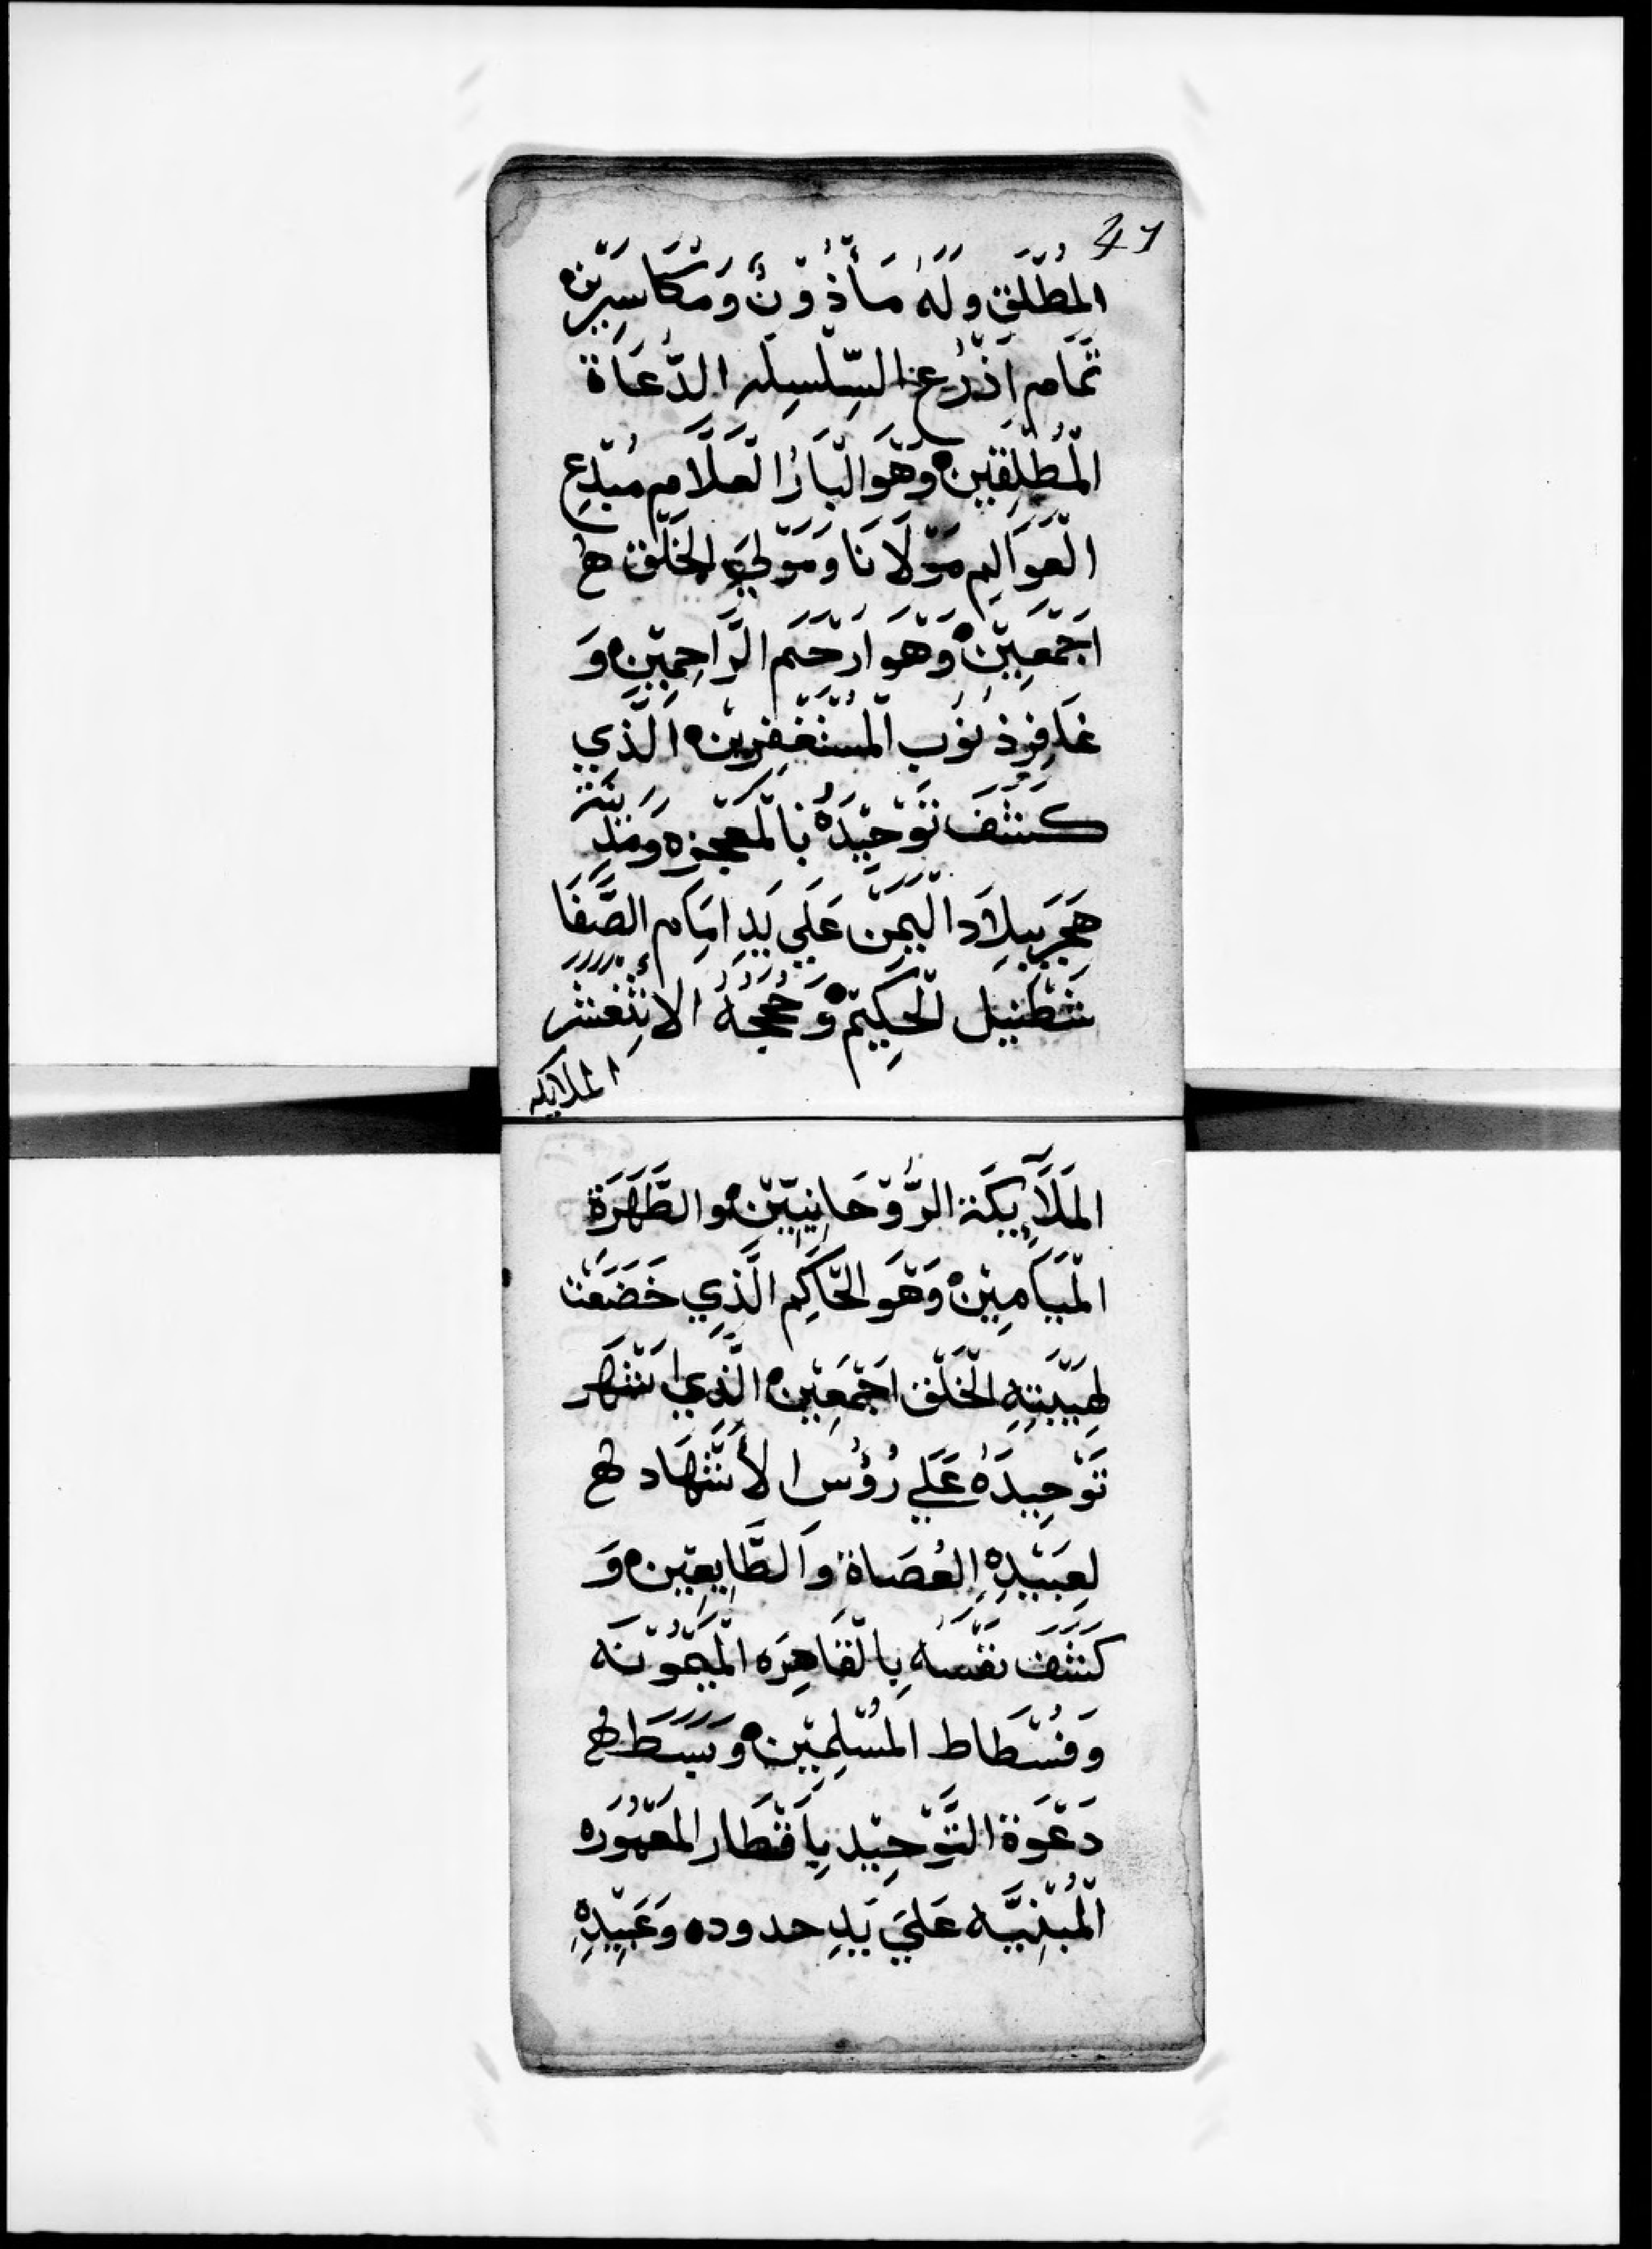 47
المُطْلَقِ وَلَهُ مَأْذُوْنٌ وَمَكَاسِرِيْنَ
تَمَام اَذْرُع السِّلْسِلَه الدُّعَاة
الْمُطْلِقِيْن وَهُوَ الْبَارُ الْعَلَّام مُبْدِع
الْعَوَالِم مَوْلَانَا وَمَوْلَي الْخَلْق
اَجْمَعِيْن وَهُوَ ارْحَم الرَّاحِمِيْن وَ
غَافِر ذنُوْب الْمُسْتَغْفِرِيْن الَّذِي
كَشَفَ تَوْحِيْدَهُ بِالْمُعْجِزه وَمَدِيْنَة
هَجَر بِبِلَاد الْيَمَنْ عَلَي يَدِ امَام الصَّفَا
شَطْنِيل الْحَكِيْم وَحُجَجَهُ الاثْنَعْشَر
الملايكه
المَلَآيِكَة الرُّوْحَانِيِّيْن والطَّهَرَة
الْمَيَامِيْن وَهُوَ الْحَاكِم الَّذِي خَضَعَتْ
لِهَيْبَتِهِ الْخَلْق اجْمَعِيْن الَّذِي اشْهَر
تَوْحِيْدَهُ عَلَي رُؤُس الْأَشْهَاد
لِعَبِيْدِهِ الْعُصَاة وَالطَّايِعِيْن وَ
كَشَفَ نَفْسَهُ بِالْقَاهِرَه الْمَيْمُوْنَه
وَفُسْطَاط الْمُسْلِمِيْن وَبَسَطَ
دَعْوَة التَّوْحِيْد بِأَقْطَار المَعْمُوْرَه
الْمُبْنِيَّه عَلَيَ يَدِ حدوده وَعَبِيْدِهِ